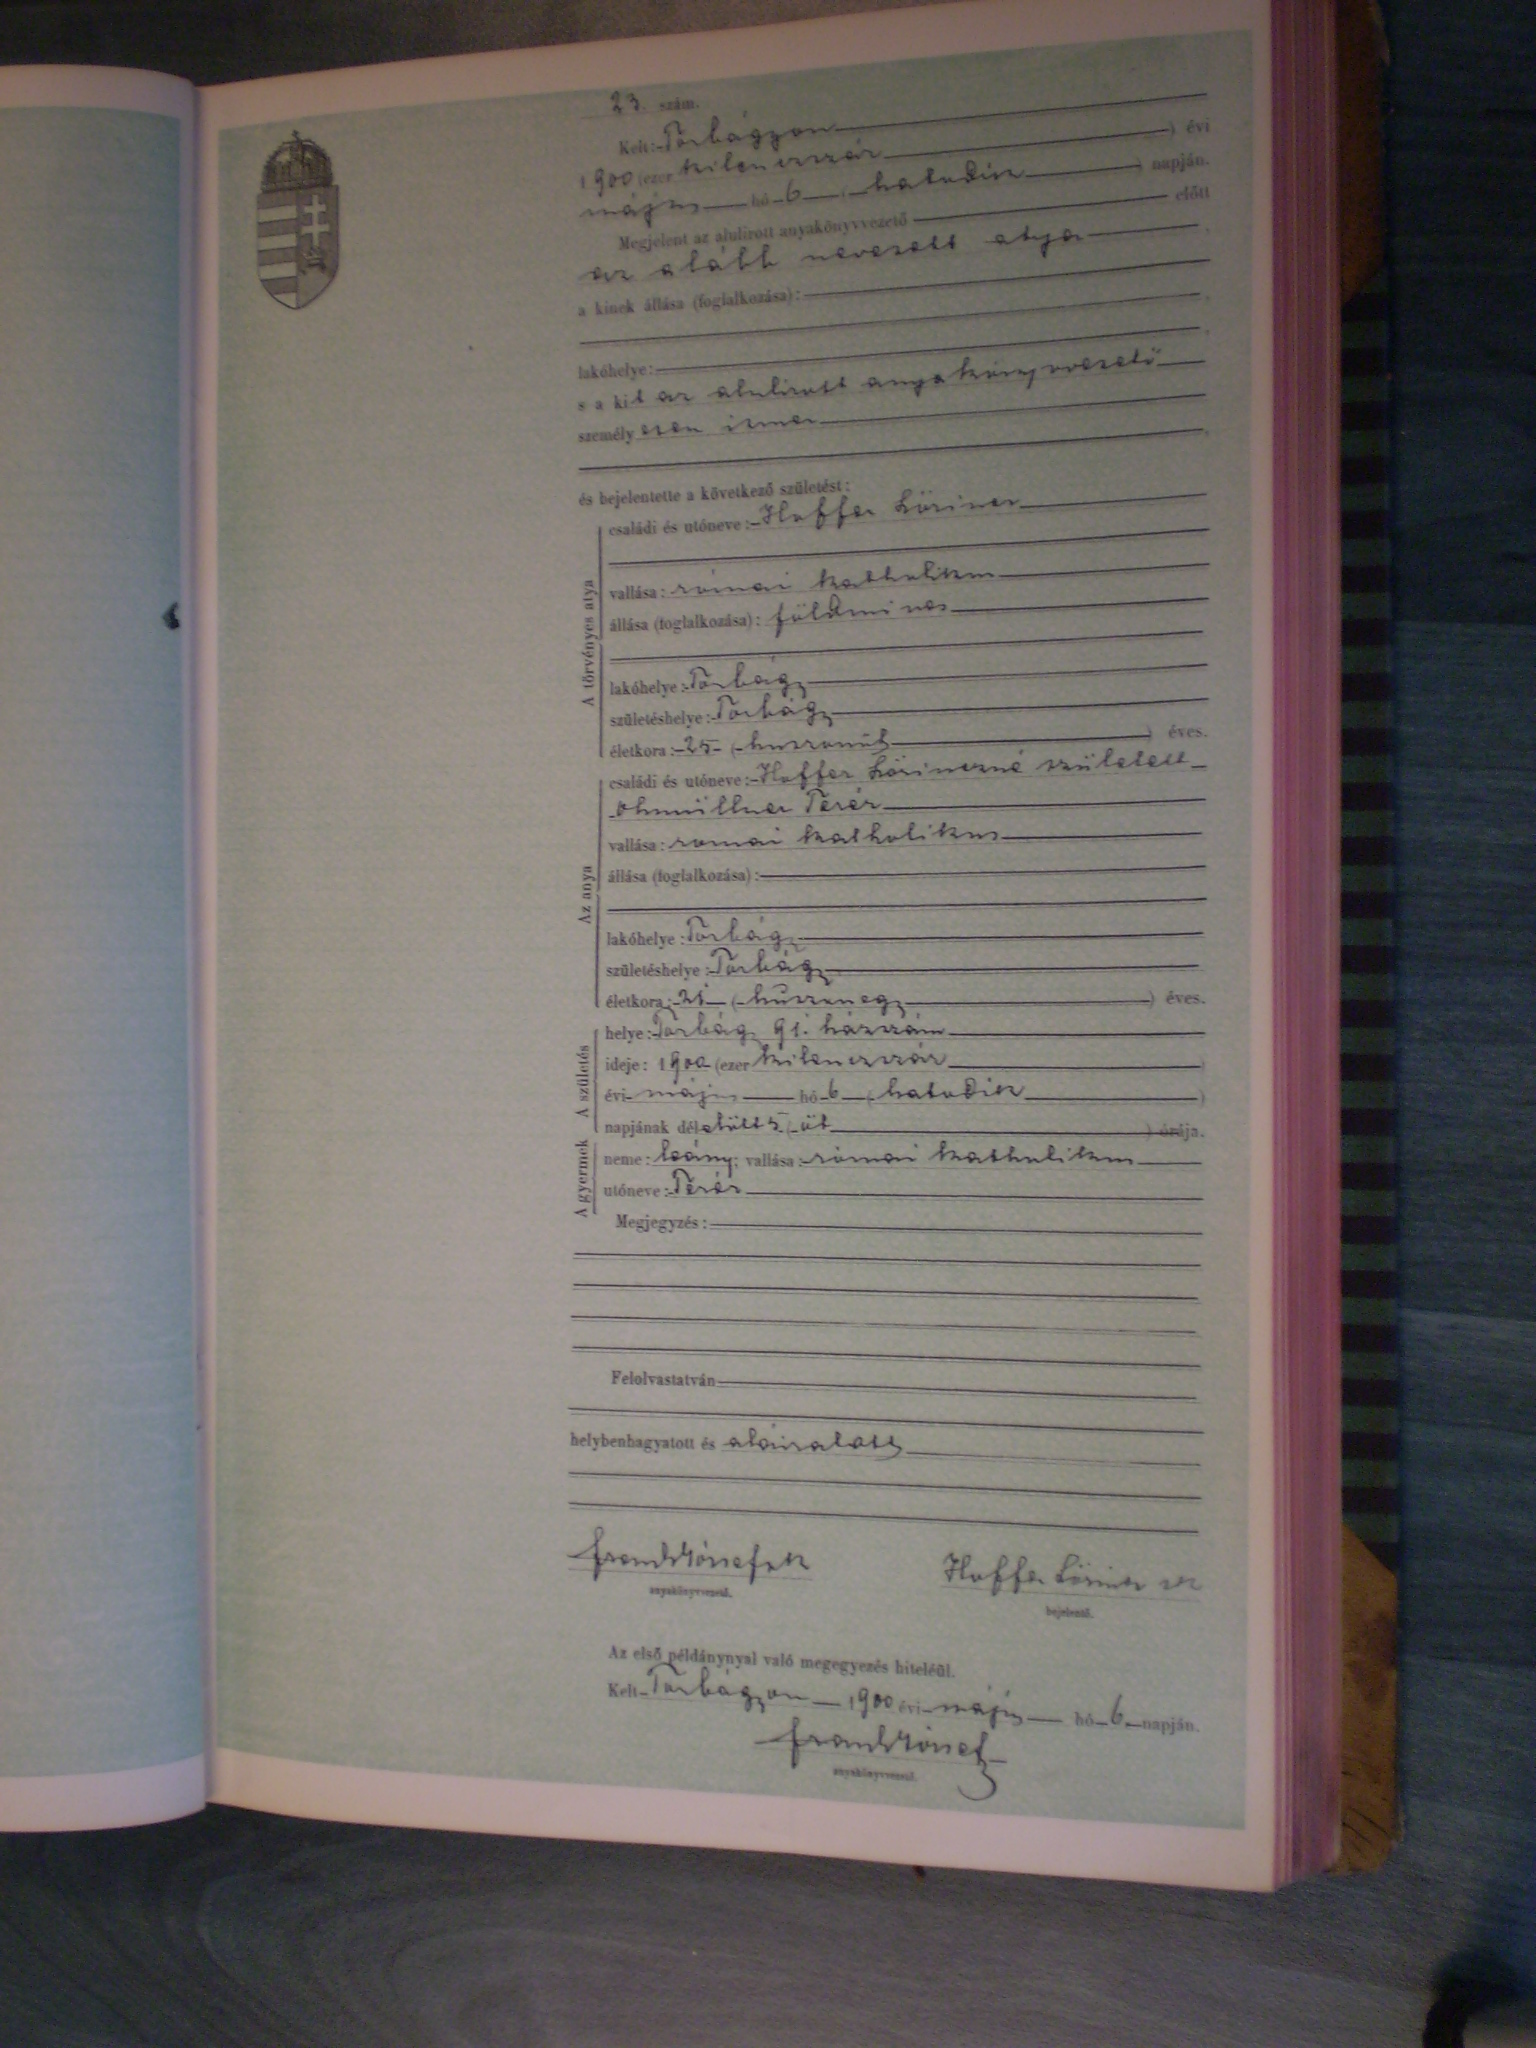 23. szám.
Kelt: Torbágyon
1900 (ezer kilenczszáz ) évi
május hó 6 ( hatodik ) napján.
Megjelent az alulirott anyakönyvvezető előtt
az alább nevezett atya
a kinek állása (foglalkozása):
lakóhelye:
s a kit az alulirott anyakönyvvezető
személyesen ismer
és bejelentette a következő születést:
A törvényes atya
családi és utóneve: Hoffer Lőrincz
vallása: római katholikus
állása (foglalkozása): földmives
lakóhelye: Torbágy
születéshelye: Torbágy
életkora: 25 ( huszonöt ) éves.
Az anya
családi és utóneve: Hoffer Lőrinczné született
Ohmüllner Teréz
vallása: romai katholikus
állása (foglalkozása):
lakóhelye: Torbágy
születéshelye: Torbágy
életkora: 21 ( huszonegy ) éves.
A születés
helye: Torbágy 91. házszám
ideje: 1900 (ezer kilenczszáz )
évi május hó 6 ( hatodik )
napjának délelőtt 5 ( öt ) órája.
A gyermek
neme: leány; vallása: római katholikus
utóneve: Teréz
Megjegyzés:
Felolvastatván
helybenhagyatott és aláiratott
Frank József sk
anyakönyvvezető.
Hoffer Lőrincz sk
bejelentő.
Az első példánynyal való megegyezés hiteléül.
Kelt Torbágyon 1900 évi május hó 6 napján.
Frank József
anyakönyvvezető.